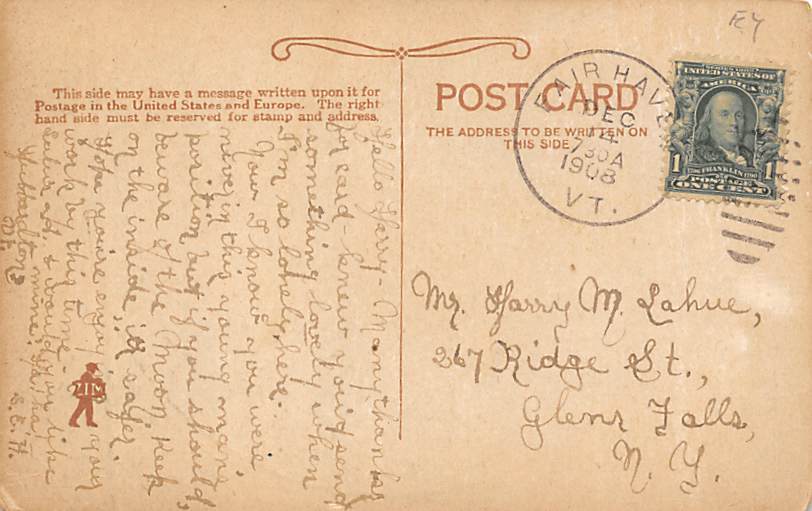 EY
This side may have a message written upon it for
Postage in the United States and Europe. The right
hand side must be reserved for stamp and address.
POST CARD
THE ADDRESS TO BE WRITTEN ON
THIS SIDE
FAIR HAVE
DEC
14
730A
1908
VT.
UNITED STATES OF
AMERICA
1 FRANKLIN 1
POSTAGE
ONE CENT
Hello Harry - Many thanks
for card - knew you'd send
something lovely when
I'm so lonely here.
Now I know you were
never in this, young man,
position but if you should,
beware of the Moon Keep
on the inside, it's safer.
Hope you're enjoying your
work by this time.
& would you like
mine. Ha ha.
Hubbardton
Vt.
S. E. H.
ZIM
Mr. Harry M. Lahue,
267 Ridge St.,
Glens Falls,
N. Y.